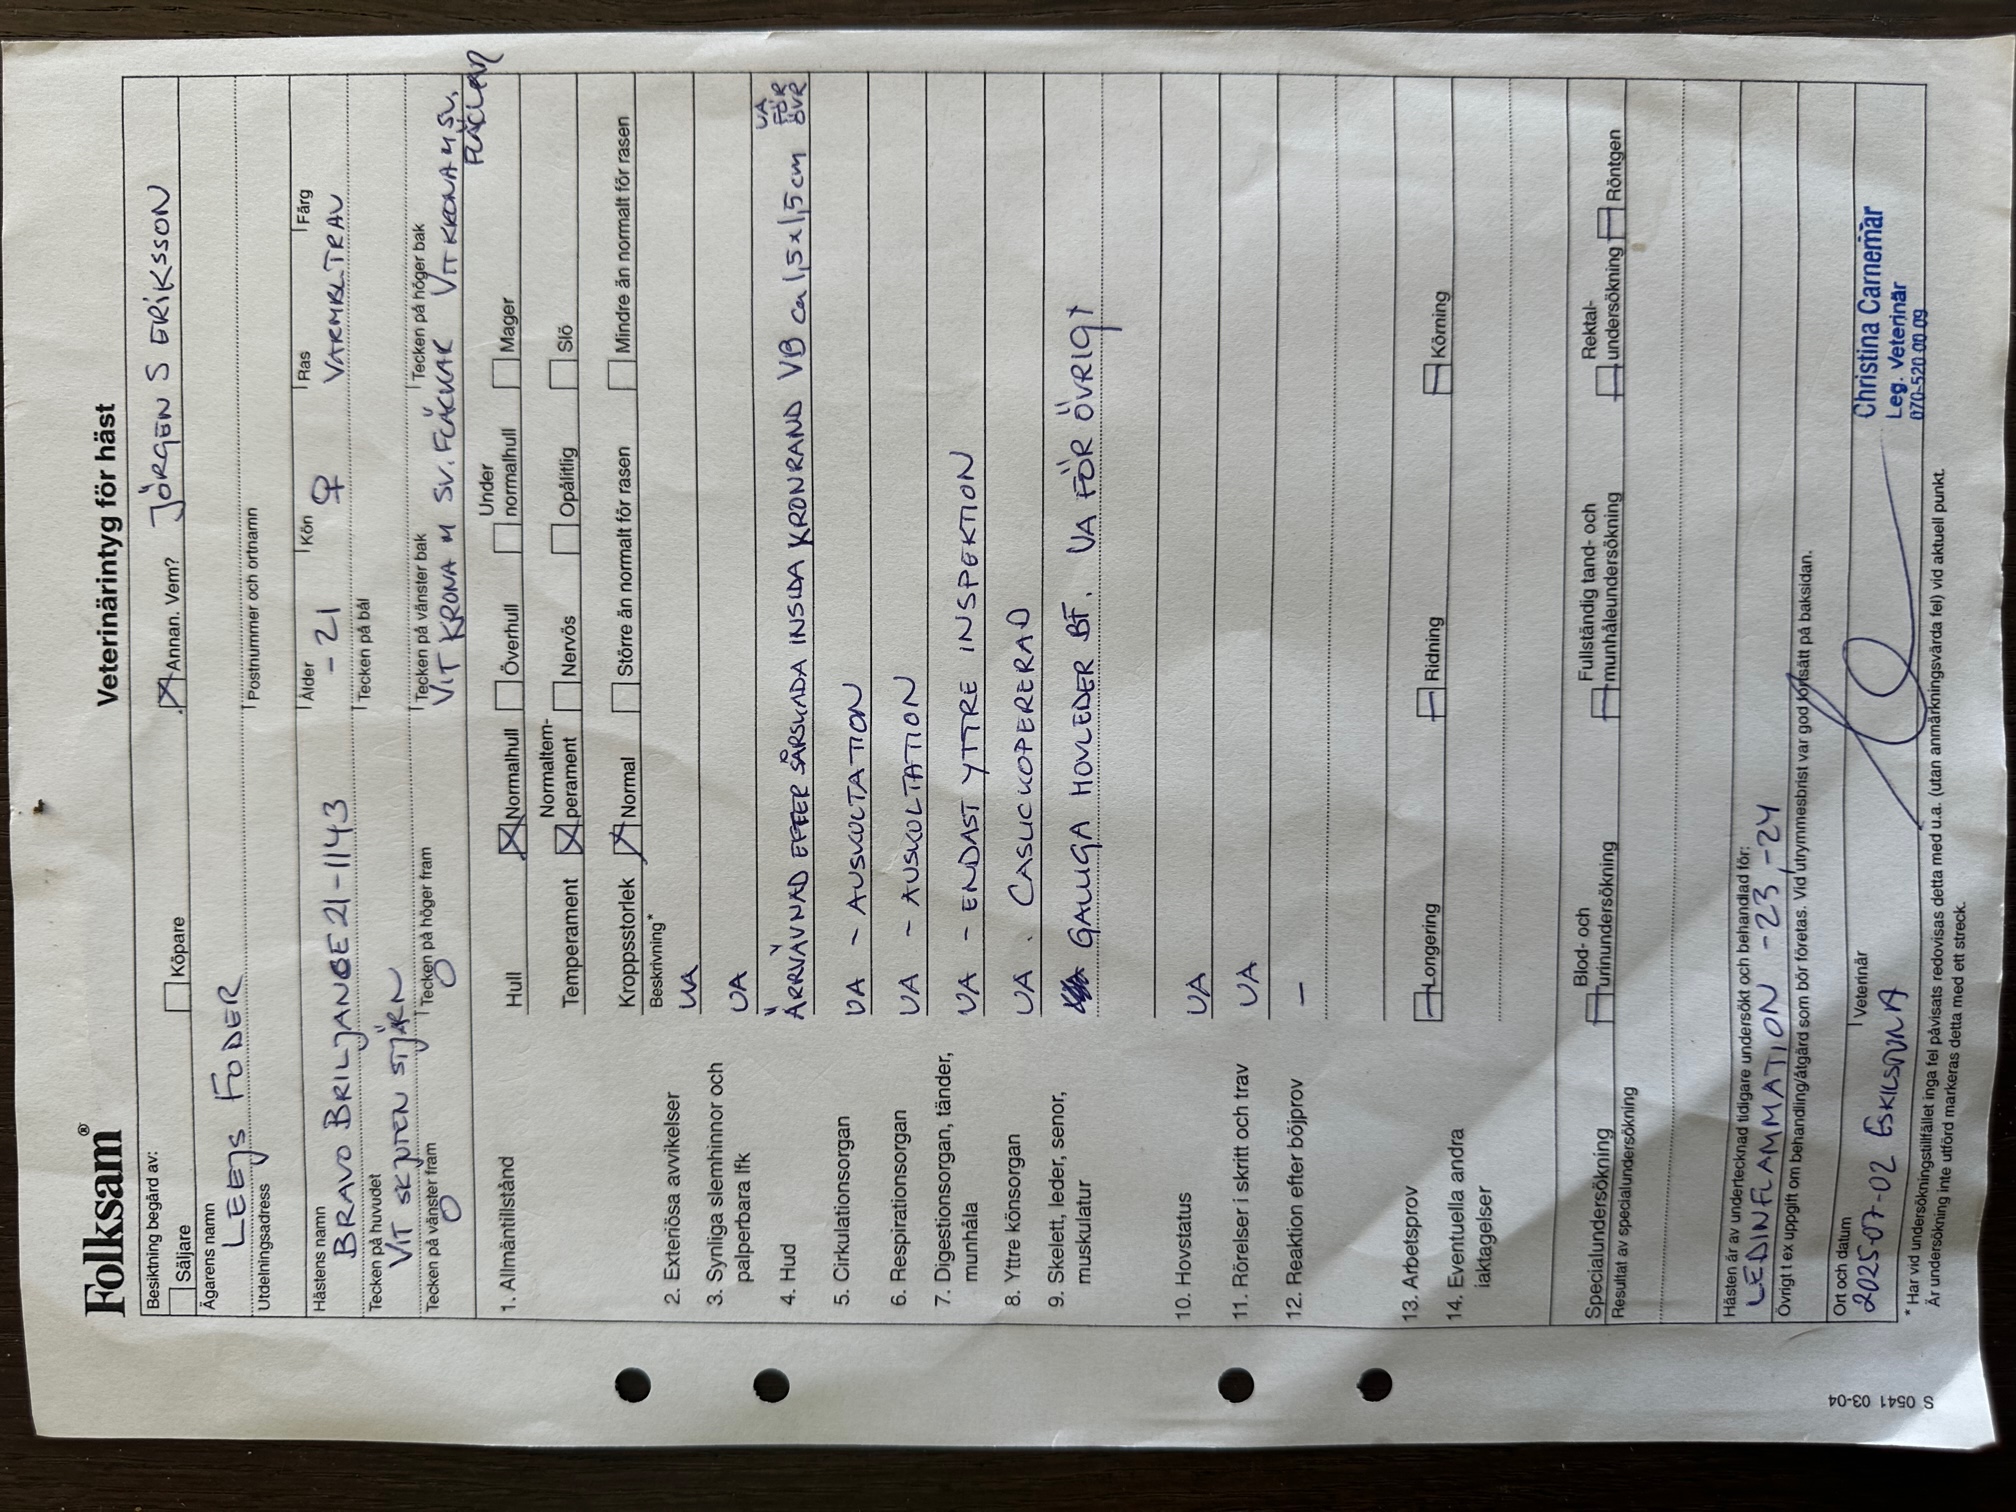 Folksam®
Veterinärintyg för häst
Besiktning begärd av:
Säljare
Köpare
Annan. Vem? JÖRGEN S ERIKSSON
Ägarens namn
LEEJS FODER
Utdelningsadress
Postnummer och ortnamn
Hästens namn
Ålder
Kön
Ras
Färg
BRAVO BRILJANCE 21-1143
-21
♀
VARMBL.TRAV
Tecken på huvudet
Tecken på bål
VIT SKJUTEN STJÄRN
Tecken på vänster fram
Tecken på höger fram
Tecken på vänster bak
Tecken på höger bak
O
O
VIT KRONA M SV. FLÄCKAR
VIT KRONA M SV. FLÄCKAR
1. Allmäntillstånd
Hull
Normalhull
Överhull
Under normalhull
Mager
Temperament
Normaltem- perament
Nervös
Opålitlig
Slö
Kroppsstorlek
Normal
Större än normalt för rasen
Mindre än normalt för rasen
Beskrivning*
2. Exteriösa avvikelser
UA
3. Synliga slemhinnor och
palperbara lfk
UA
4. Hud
ÄRRVÄVNAD EFTER SÅRSKADA INSIDA KRONRAND VB ca 1,5 x 1,5 cm UA FÖR ÖVR
5. Cirkulationsorgan
UA - AUSKULTATION
6. Respirationsorgan
UA - AUSKULTATION
7. Digestionsorgan, tänder,
munhåla
UA - ENDAST YTTRE INSPEKTION
8. Yttre könsorgan
UA. CASLICKOPERERAD
9. Skelett, leder, senor,
muskulatur
GALLIGA HOVLEDER BF. UA FÖR ÖVRIGT
10. Hovstatus
UA
11. Rörelser i skritt och trav
UA
12. Reaktion efter böjprov
–
13. Arbetsprov
Longering
Ridning
Körning
14. Eventuella andra
iakttagelser
Specialundersökning
Blod- och urinundersökning
Fullständig tand- och munhåleundersökning
Rektal- undersökning
Röntgen
Resultat av specialundersökning
Hästen är av undertecknad tidigare undersökt och behandlad för:
LEDINFLAMMATION -23, -24
Övrigt t ex uppgift om behandling/åtgärd som bör företas. Vid utrymmesbrist var god fortsätt på baksidan.
Ort och datum
Veterinär
2025-07-02 ESKILSTUNA
Christina Carnemar
Leg. Veterinär
070-520 00 09
* Har vid undersökningstillfället inga fel påvisats redovisas detta med u.a. (utan anmärkningsvärda fel) vid aktuell punkt.
Är undersökning inte utförd markeras detta med ett streck.
S 0541 03-04